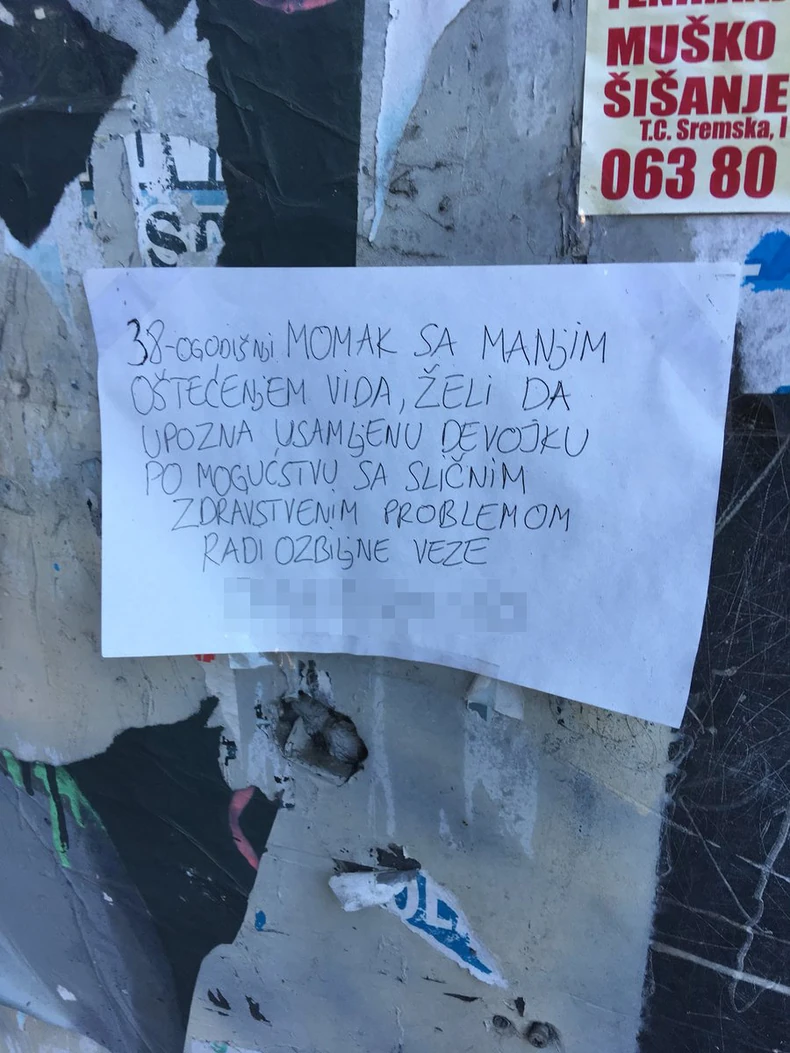 MUŠKO
ŠIŠANJE
T.C. Sremska, l
063 80
38-OGODIŠNjI MOMAK SA MANjIM
OŠTEĆENjEM VIDA, ŽELI DA
UPOZNA USAMLjENU DEVOJKU
PO MOGUĆSTVU SA SLIČNIM
ZDRAVSTVENIM PROBLEMOM
RADI OZBILjNE VEZE